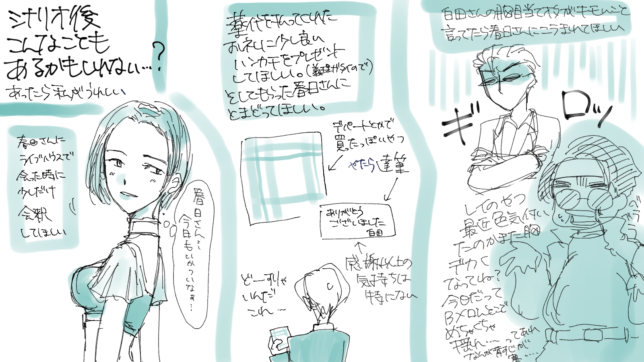 シナリオ後
こんなことも
あるかもしれない…?
あったら私がうれしい
春日さんに
ライブハウスで
会った時に
少しだけ
会釈
してほしい
春日さん…
今日もいかついなぁ…!
薬代を払ってくれた
お礼に少し良い
ハンカチをプレゼント
してほしい。
としてもらった春日さんに
とまどってほしい。
デパートとかで
買ったっぽいやつ
やたら達筆
ありがとう
ございました
白田
感謝以上の
気持ちは
特にない
どーすりゃ
いいんだ
これ…
白田さんの胸目当てオタクがキモいこと
言ってたら春日さんにニラまれてほしい
ギ
ロッ
レイのやつ
最近色気付い
たのかまた胸
デカく
なってね?
今日だって
めちゃくちゃ
揺れ…ってあれ
なんか背筋が…